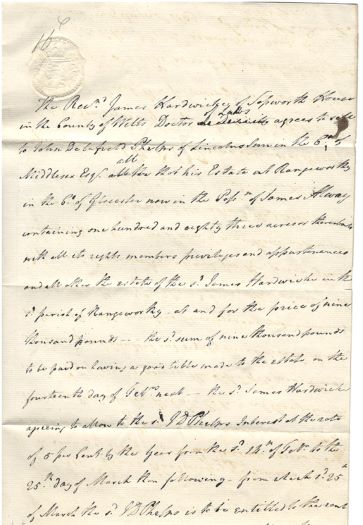 The Revd. James Hardwicke of Sopworth House
in the County of Wilts Doctor of Laws agrees to sell
to John Delafield Phelps of Lincolns Inn in the Co. of
Middlesex Esq. all that his Estate at Rangeworthy
in the Co. of Glocester now in the Possn. of James Alway
containing one hundred and eighty three acres or thereabouts
with all its rights members privileges and appurtenances
and all other the estate of the sd. James Hardwicke in the
sd. parish of Rangeworthy at and for the price of nine
thousand pounds -- the sd. sum of nine thousand pounds
to be paid on having a good title made to the estate on the
fourteenth day of Feby. next -- the sd. James Hardwicke
agreeing to allow to the sd. J D Phelps Interest at the rate
of 5 per Cent by the Year from the sd. 14th. of Feby. to the
25th. day of March then following - from which sd. 25th
of March the sd. J D Phelps is to be entitled to the rent